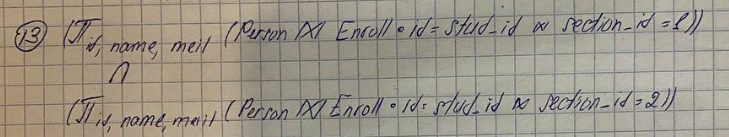 13 (π id, name, meil (Person ⋈ Enroll • id = stud_id ∝ section_id = 1))
∩
(π id, name, meil (Person ⋈ Enroll • id = stud_id ∝ section_id = 2))